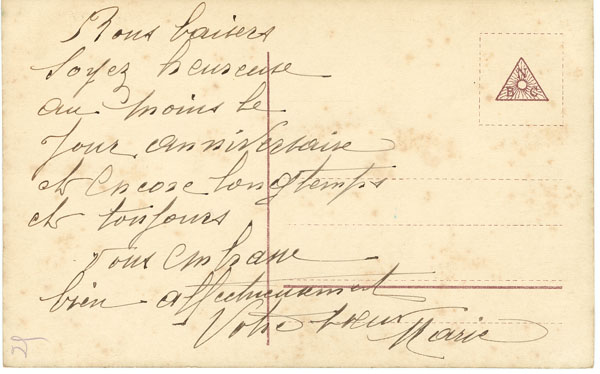 Bons baisers
Soyez heureuse
au moins le
Jour anniversaire
et encore longtemps
et toujours
Vous embrasse
bien affectueusement
Votre Marie
N
B C
29